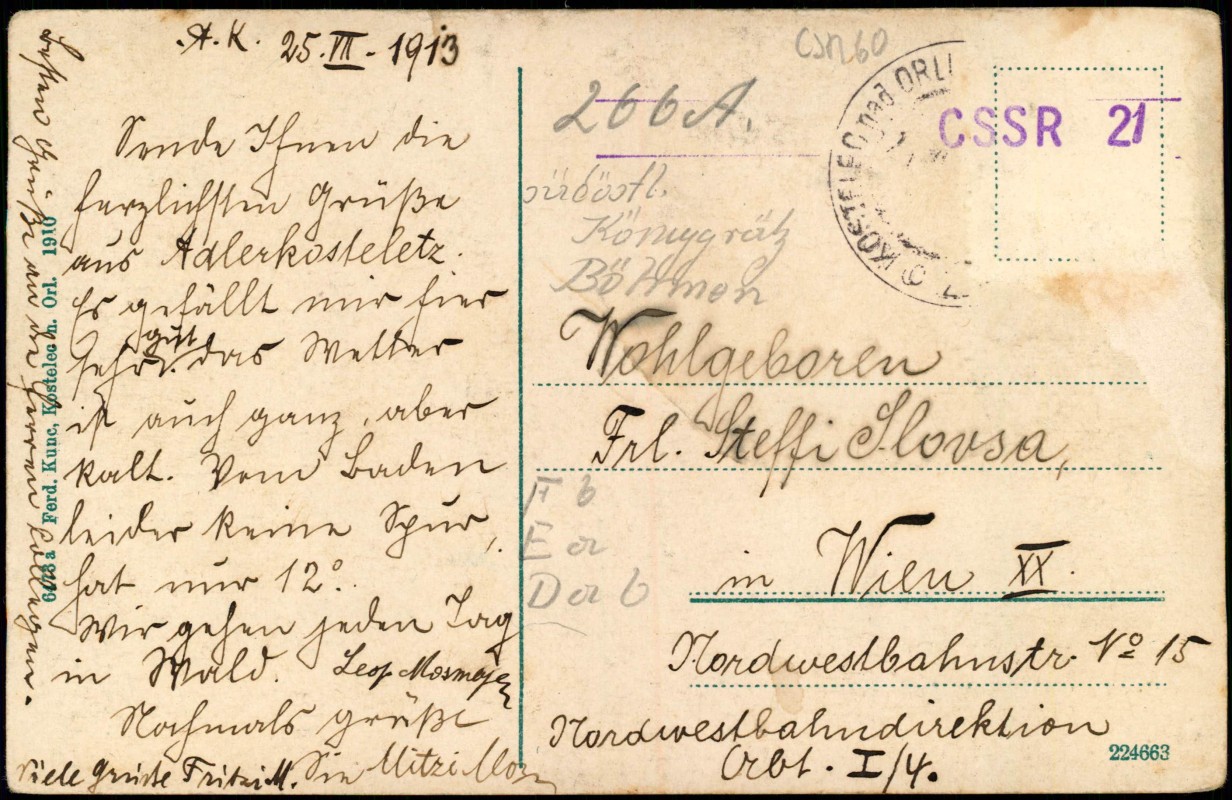 A.K. 25.VII.-1913
Sende Ihnen die
herzlichsten Grüße
aus Adlerkosteletz.
Es gefällt mir hier
gut
sehr. das Wetter
ist auch ganz, aber
kalt. Vom Baden
leider keine Spur,
hat nur 12°.
Wir gehen jeden Tag
in Wald. Leop.
Nochmals grüßt
Sie Mitzi
Viele Grüße Fritzi M.
Bestens Grüße an die Herren Kollegen.
Ferd. Kunc, Kostelec n. Orl. 1910
CSR 60
266 A.
Königgrätz
Böhmen
KOSTELEC nad ORLI
CSSR 21
Wohlgeboren
Frl. Steffi Slovsa,
F b
E a
Da b
in Wien XX.
Nordwestbahnstr. No 15
Nordwestbahndirektion
Abt. I/4.
224663